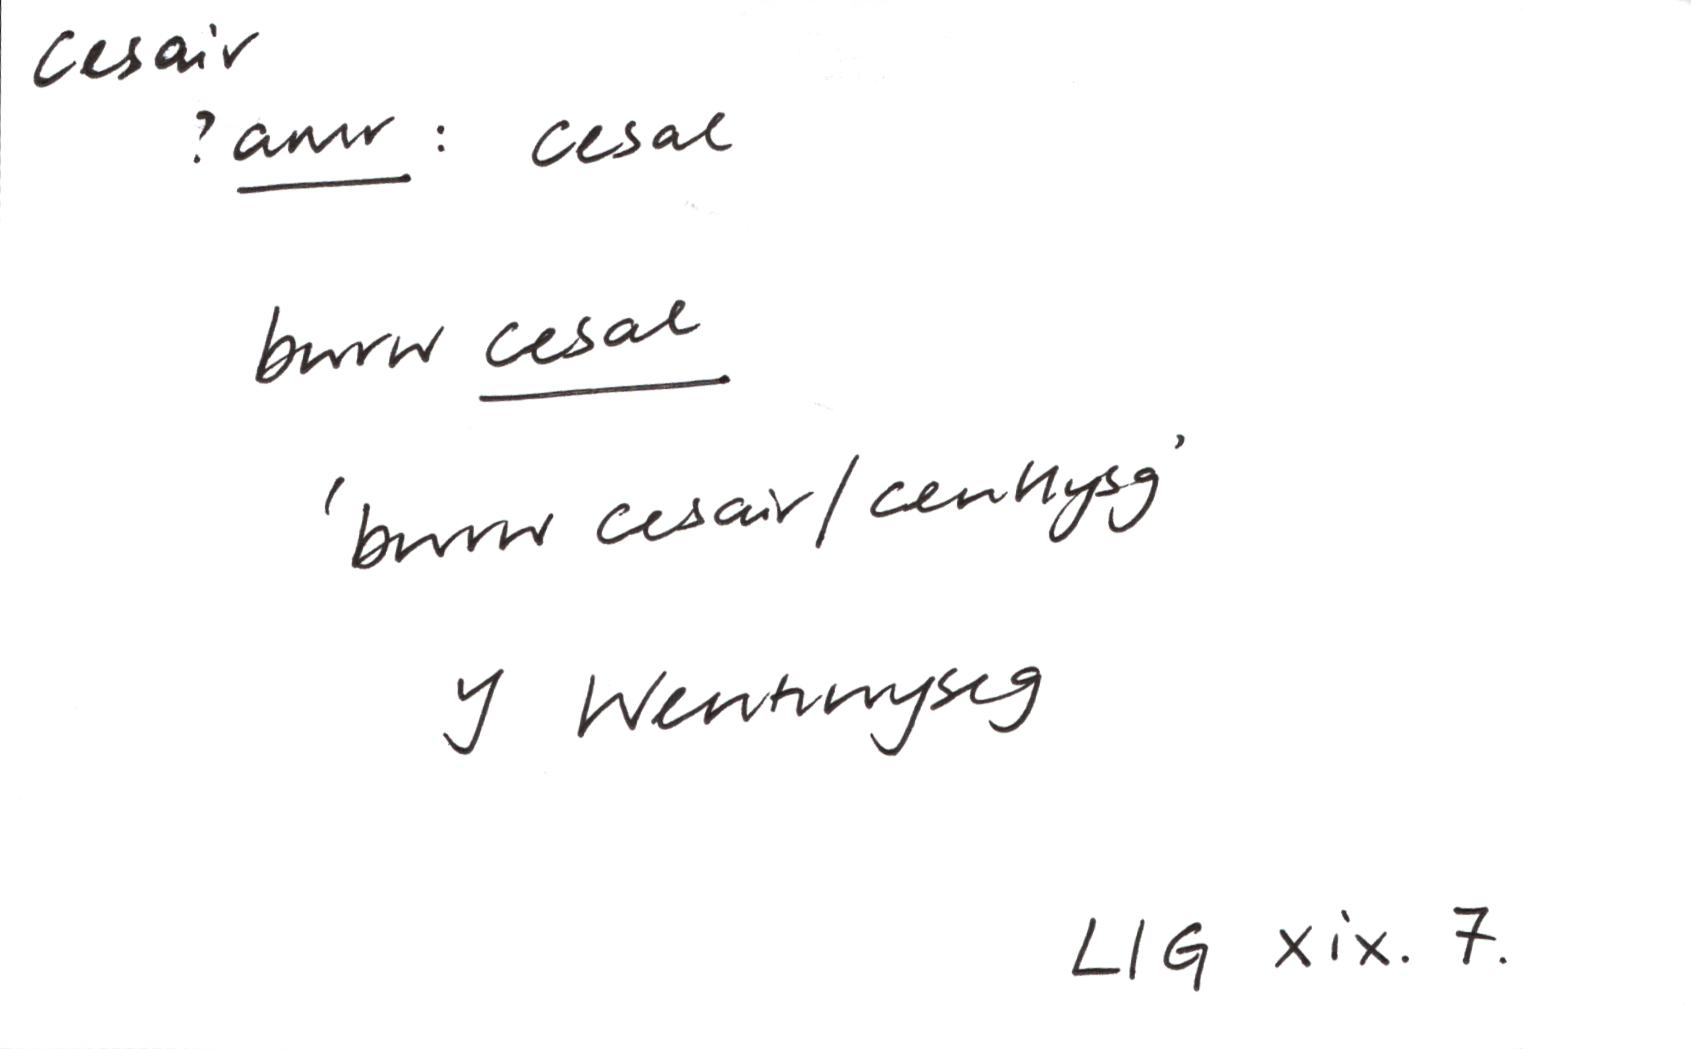 cesair
? amr : cesal
bwrw cesal
'bwrw cesair/cenllysg'
y Wenhwyseg
LlG xix. 7.